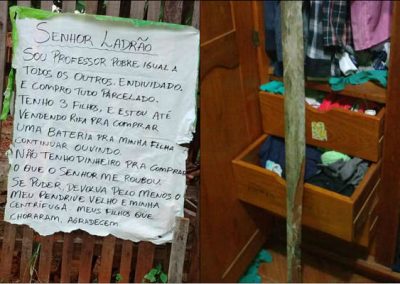 SENHOR LADRÃO
SOU PROFESSOR POBRE IGUAL A
TODOS OS OUTROS. ENDIVIDADO.
E COMPRO TUDO PARCELADO.
TENHO 3 FILHOS, E ESTOU ATÉ
VENDENDO RIFA PRA COMPRAR
UMA BATERIA PRA MINHA FILHA
CONTINUAR OUVINDO.
NÃO TENHO DINHEIRO PRA COMPRAR
O QUE O SENHOR ME ROUBOU.
SE PUDER, DEVOLVA PELO MENOS O
MEU PENDRIVE VELHO E MINHA
CENTRÍFUGA. MEUS FILHOS QUE
CHORARAM, AGRADECEM.